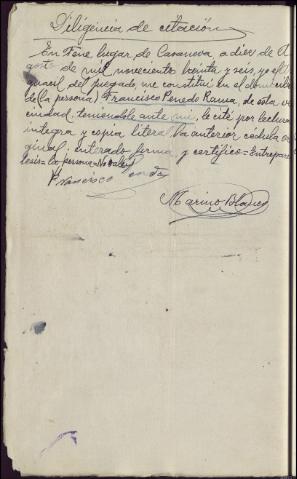 Diligencia de citación
En Fene lugar de Casanova a diez de A
gosto de mil novecientos treinta y seis, yo el
guacil del Juzgado, me constituí en el domicilio
de (la persona) Francisco Penedo Rama, de esta ve
cindad, teniendole ante mi, le cité por lectura
integra y copia literal la anterior cédula ori
ginal: enterado firma y certifico = Entrepare
tesis = la persona = No vale
Francisco
Marino Blanco